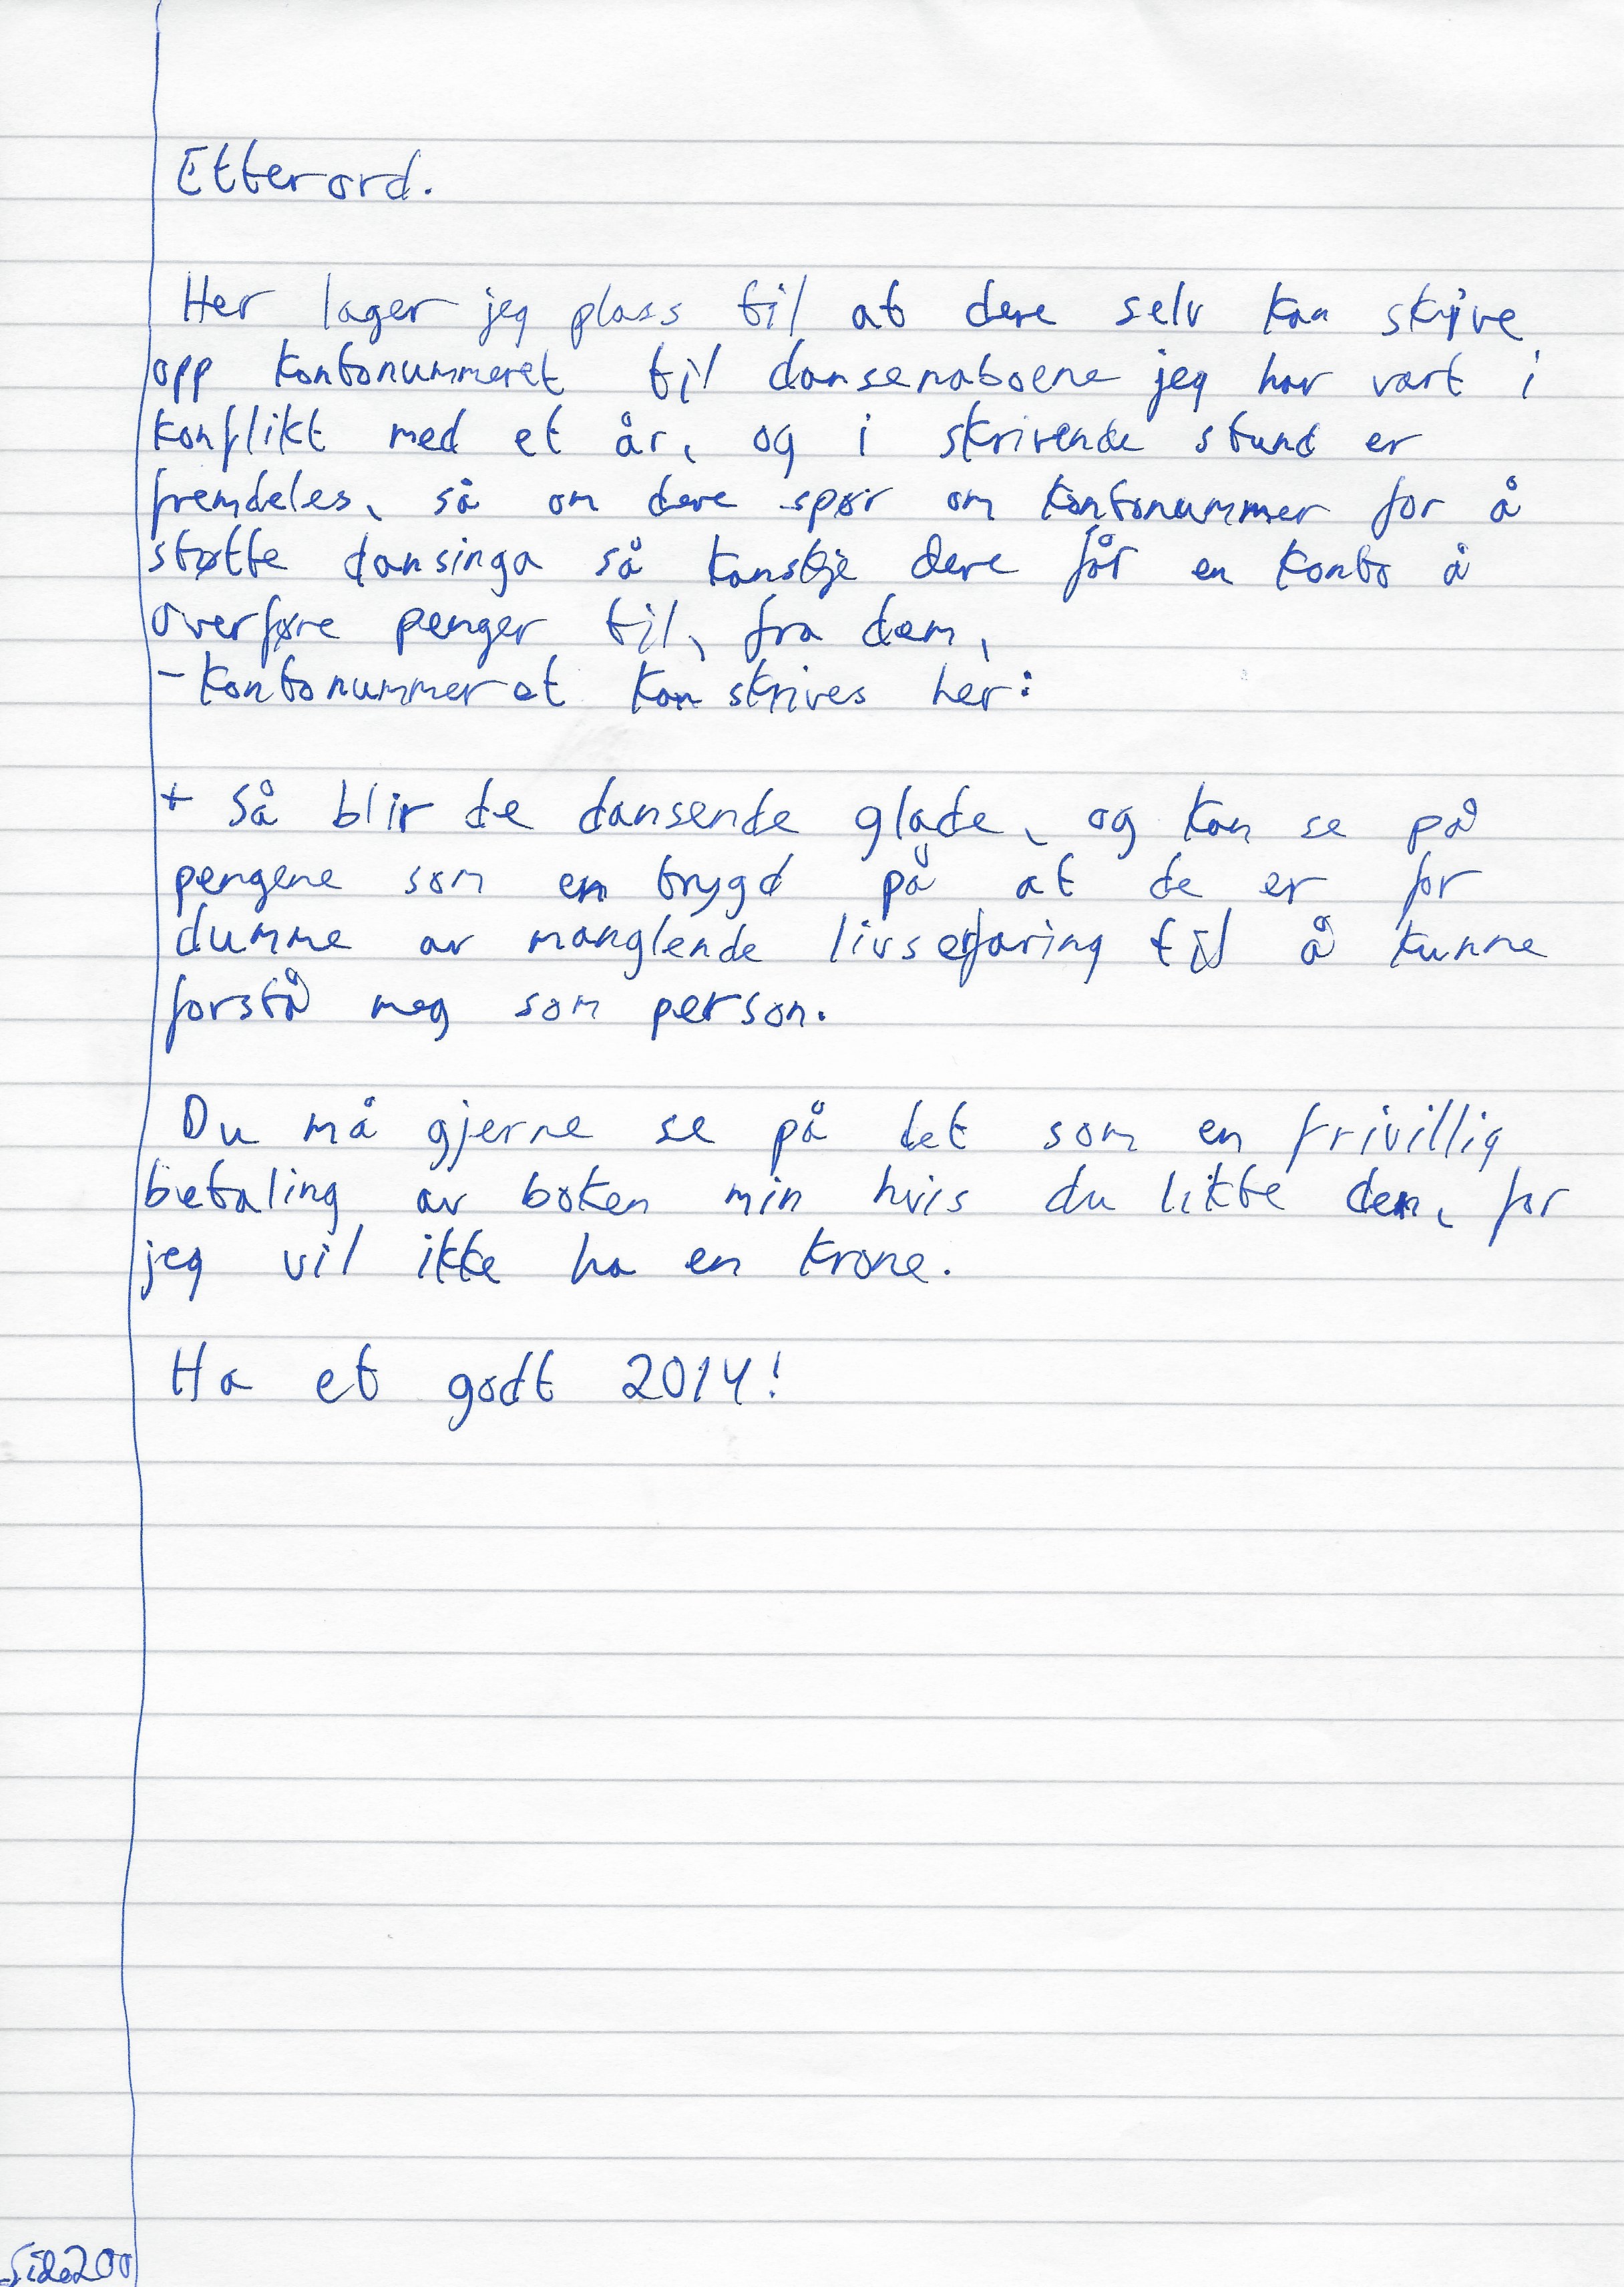 Etterord.
Her lager jeg plass til at dere selv kan skrive
opp kontonummeret til dansenaboene jeg har vært i
konflikt med et år, og i skrivende stund er
fremdeles, så om dere spør om kontonummer for å
støtte dansinga så kanskje dere får en konto å
overføre penger til, fra dem,
- Kontonummeret kan skrives her:
+ Så blir de dansende glade, og kan se på
pengene som en trygd på at de er for
dumme av manglende livserfaring til å kunne
forstå meg som person.
Du må gjerne se på det som en frivillig
betaling av boken min hvis du likte den, for
jeg vil ikke ha en krone.
Ha et godt 2014!
Side 200